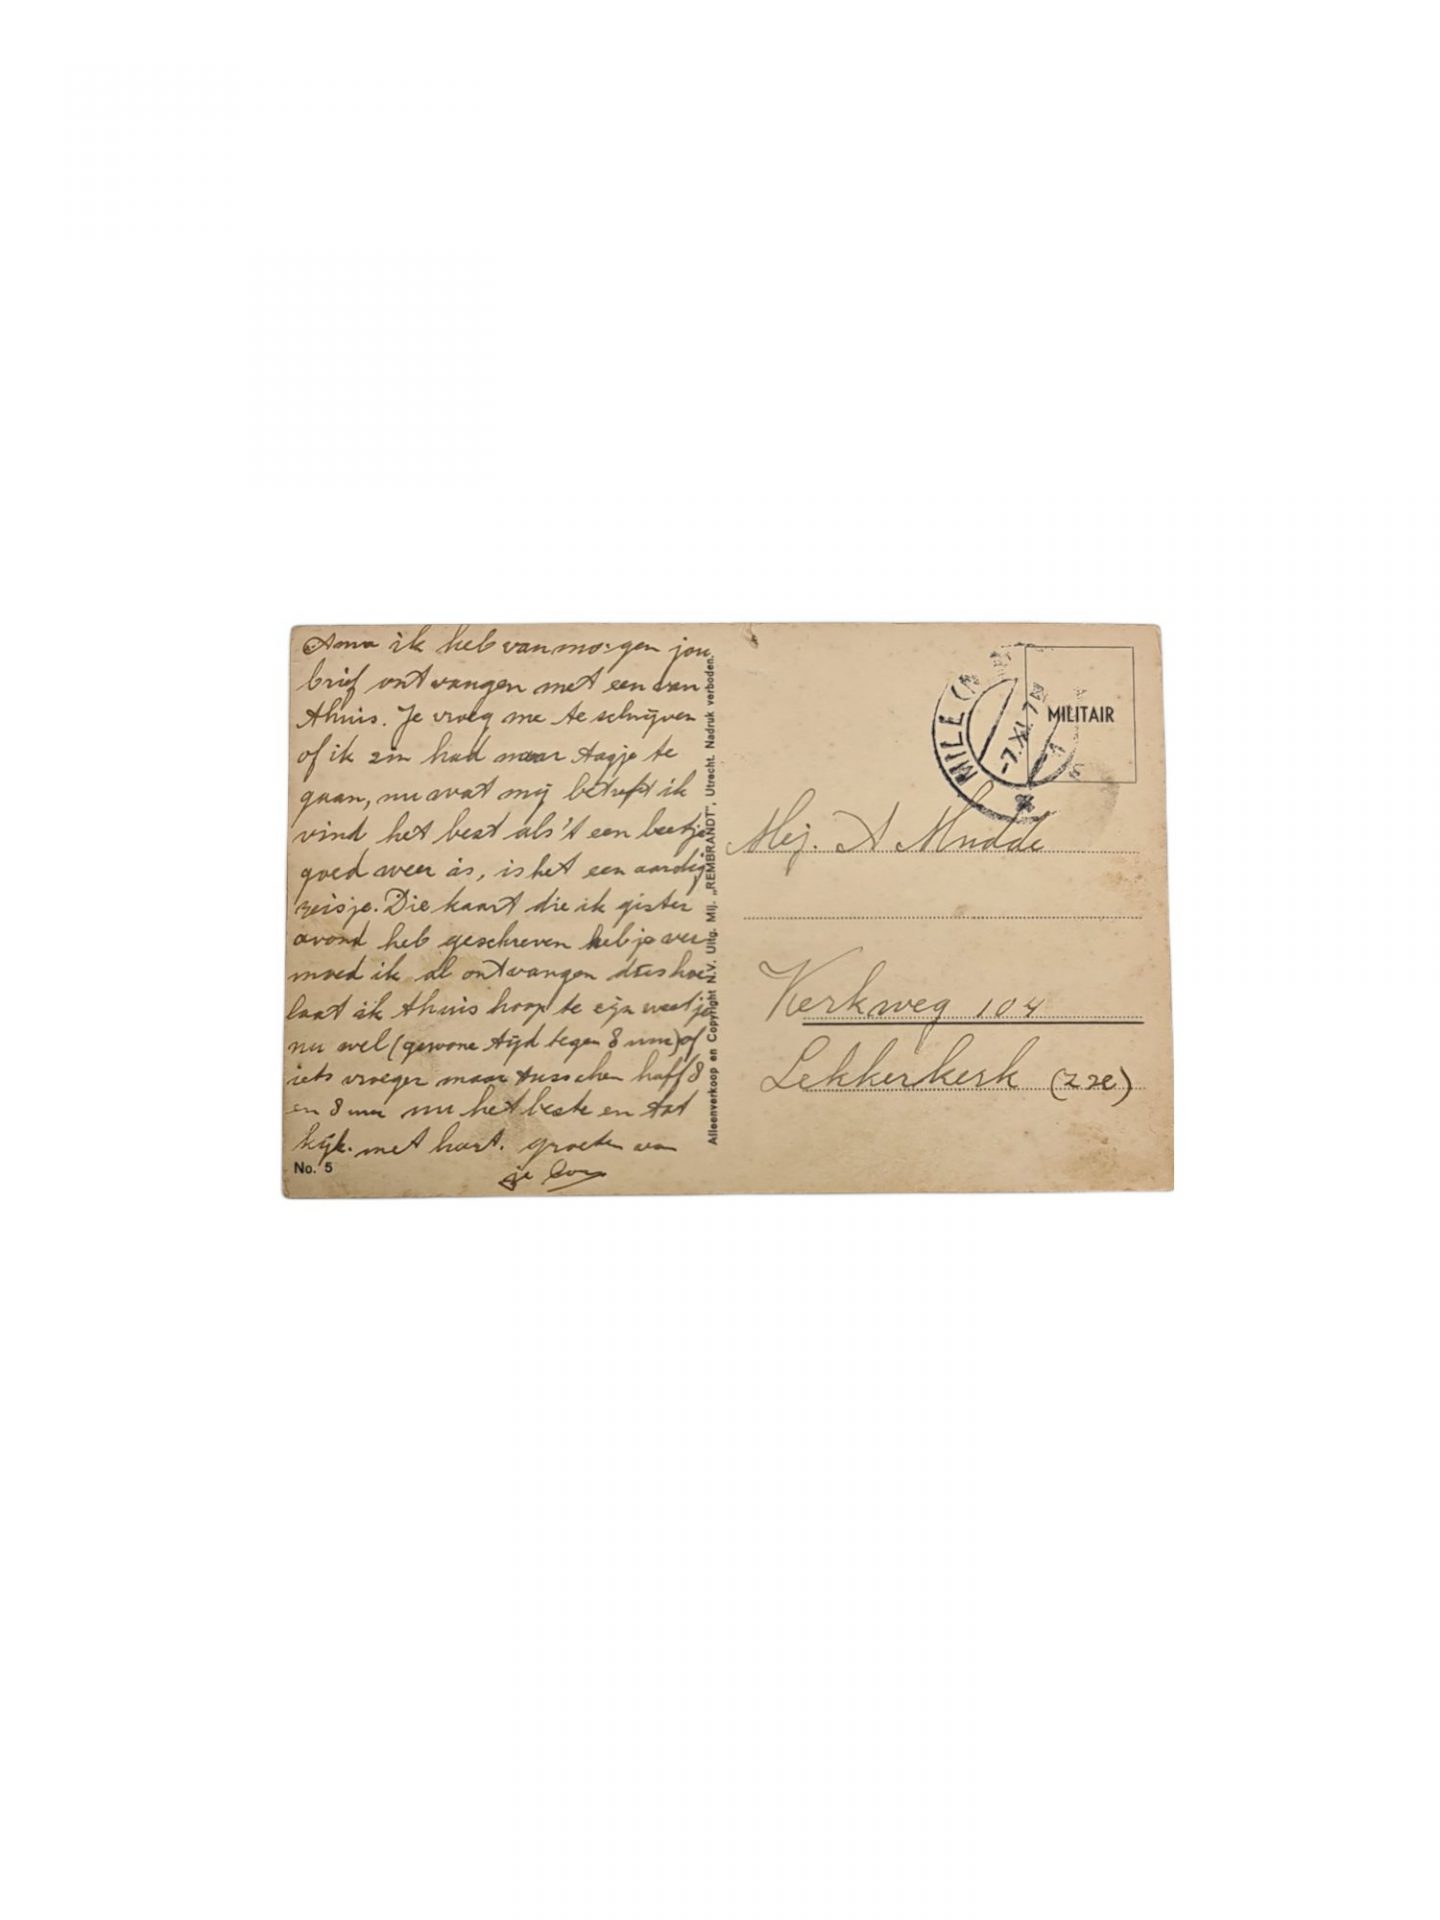 Anna ik heb van morgen jou
brief ontvangen met een van
thuis. Je vroeg me te schrijven
of ik zin had naar Aagje te
gaan, nu wat mij betreft ik
vind het best als 't een beetje
goed weer is, is het een aardig
reisje. Die kaart die ik gister
avond heb geschreven heb je ver
moed ik al ontvangen dus hoe
laat ik thuis hoop te zijn weet je
nu wel (gewone tijd tegen 8 uur) of
iets vroeger maar tusschen half 8
en 8 uur nu het beste en tot
kijk. met hart. groeten van
je
No. 5
Alleenverkoop en Copyright N.V. Uitg. Mij. „REMBRANDT", Utrecht. Nadruk verboden.
MILL (N
-7.XI.7N
MILITAIR
Mej. A Mudde
Kerkweg 104
Lekkerkerk (ZH)